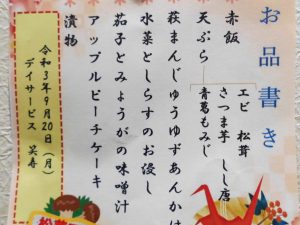 お品書き
赤飯
天ぷら
エビ 松茸
さつま芋 しし唐
青葛もみじ
萩まんじゅうゆずあんかけ
水菜としらすのお浸し
茄子とみょうが味噌汁
アップルピーチケーキ
漬物
令和3年9月20日(月)
デイサービス